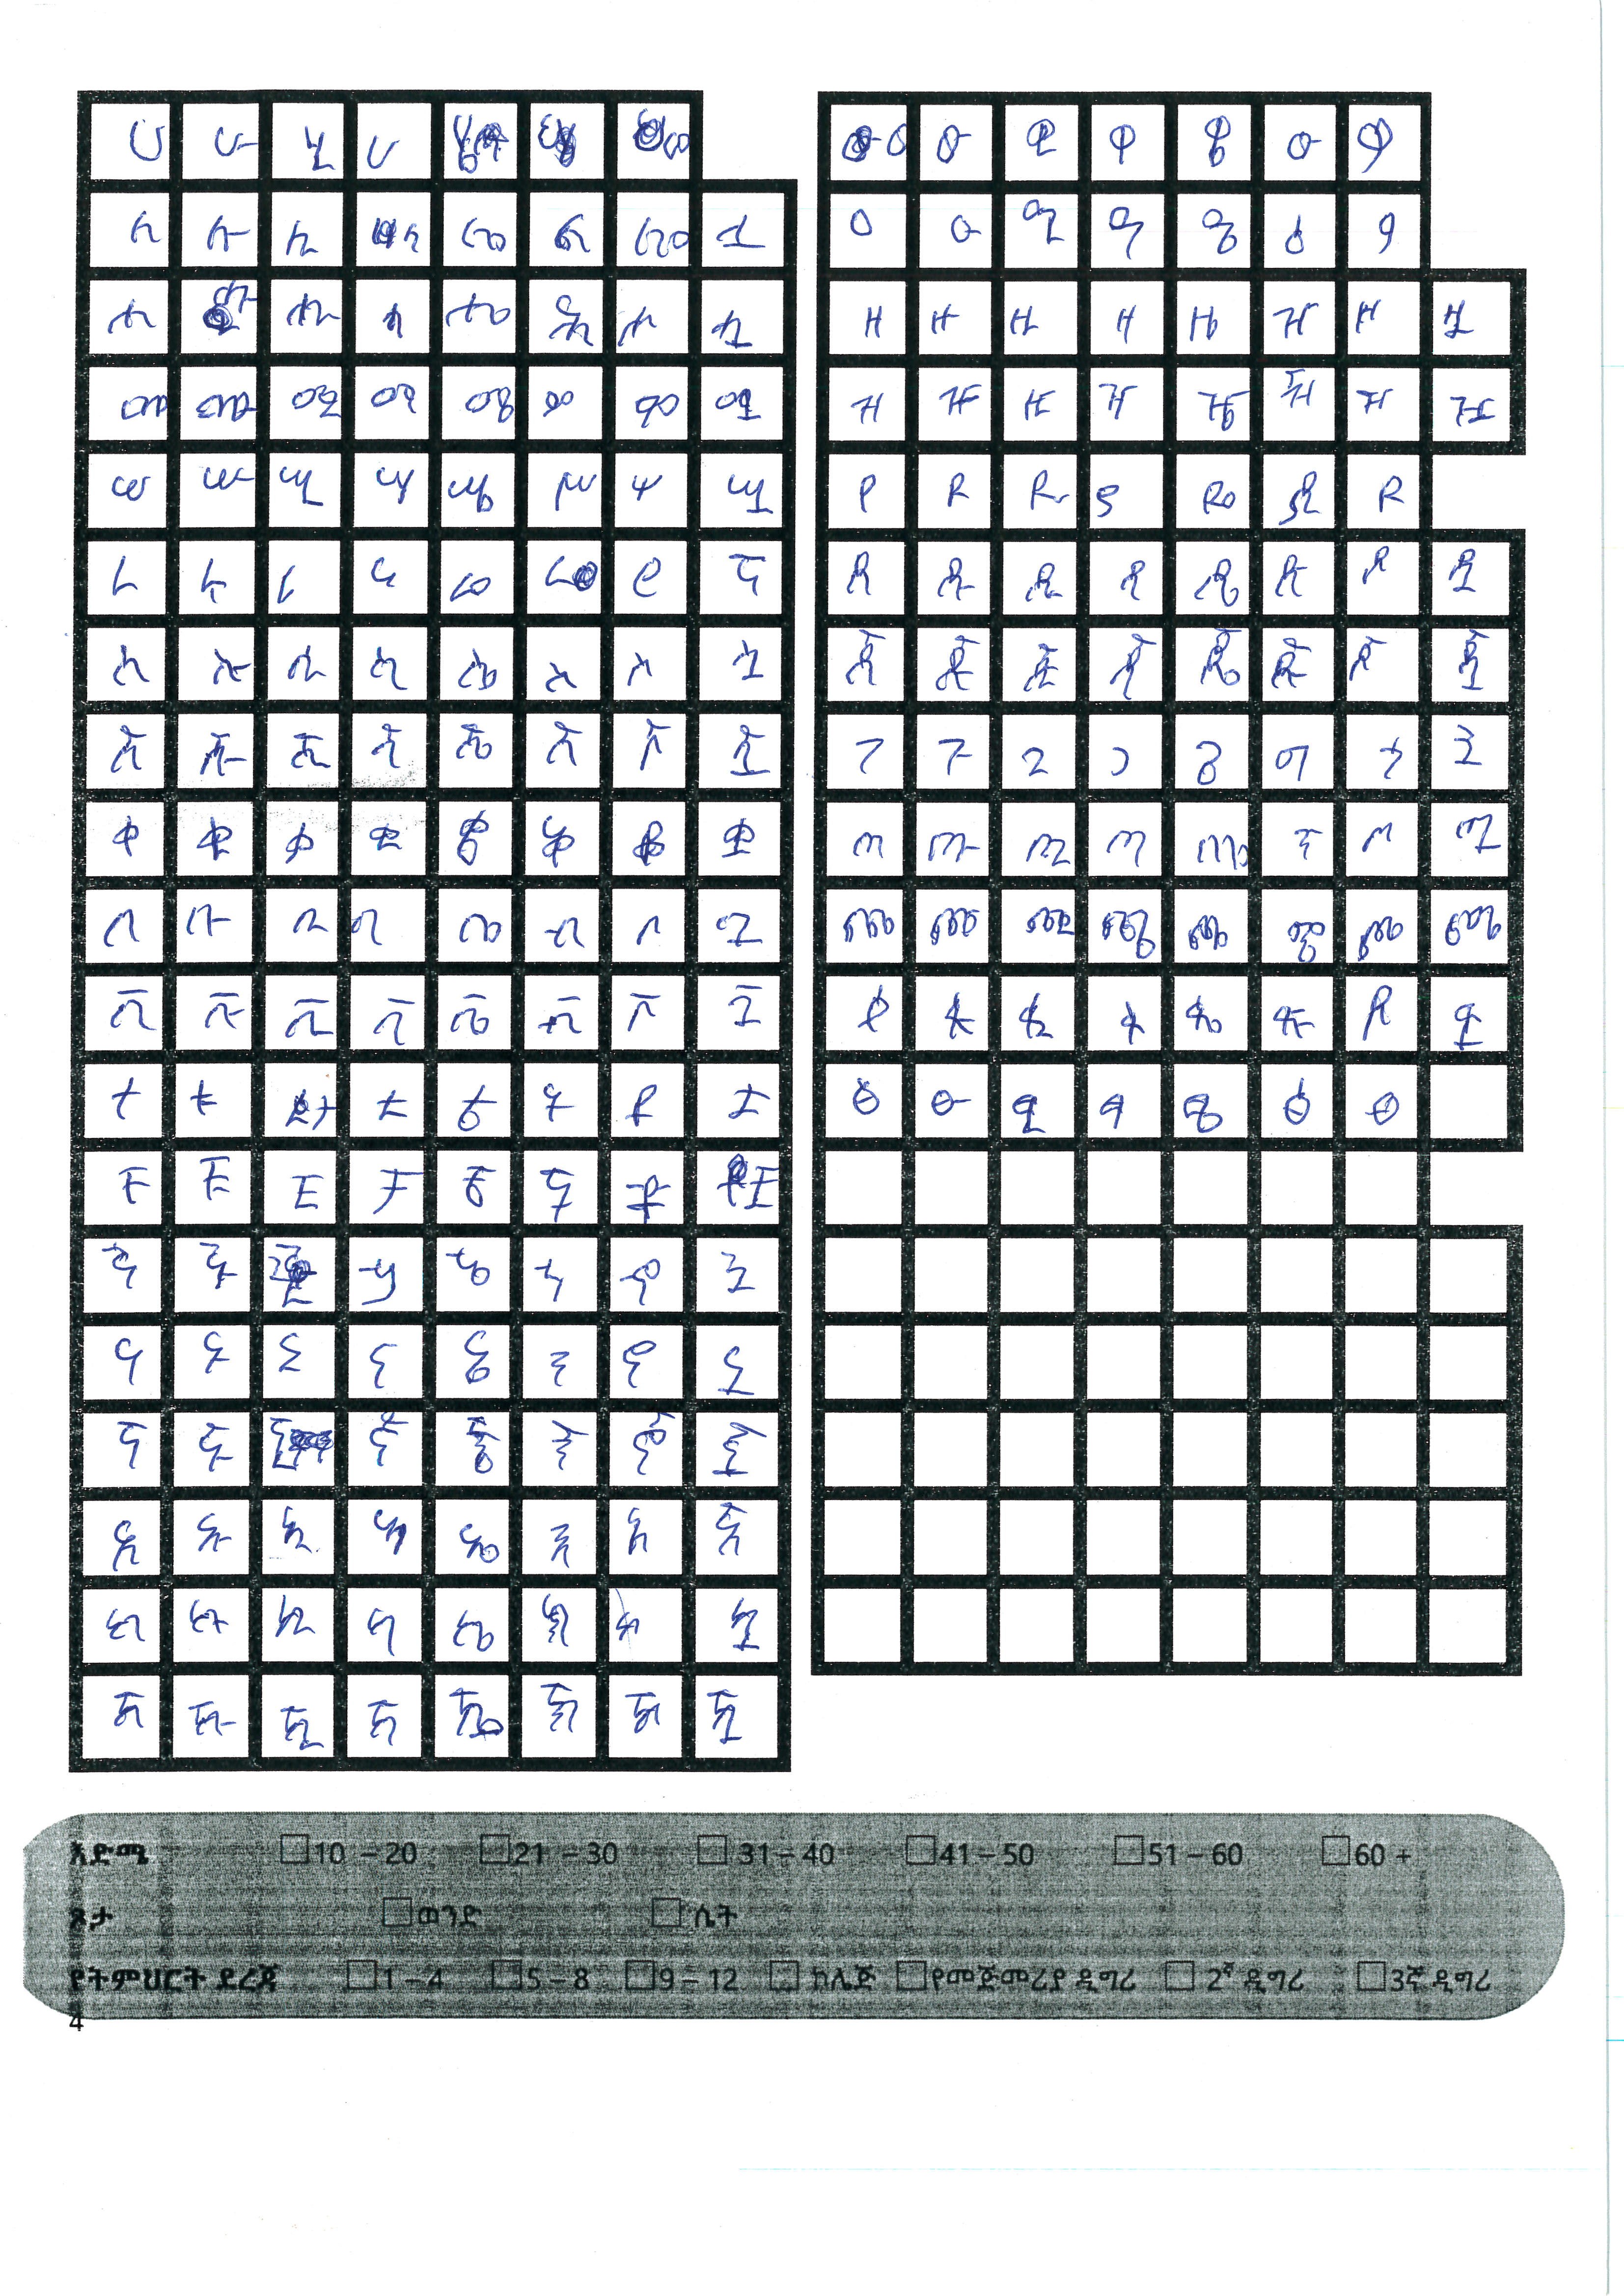 ሀ ሁ ሂ ሀ
ለ ሉ ሊ ለ ሏ
ሐ ሑ ሒ ሐ ሔ ሕ ሐ ሗ
መ ሙ ሚ ማ ሜ ም ሞ ሟ
ሠ ሡ ሢ ሣ ሤ ሥ ሦ ሧ
ረ ሩ ሪ ራ ሬ
ሰ ሱ ሲ ሳ ሴ ስ ሶ ሷ
ሸ ሹ ሺ ሻ ሼ ሽ ሾ ሿ
ቀ ቁ ቂ ቃ ቄ ቅ ቆ ቋ
በ ቡ ቢ ባ ቤ ብ ቦ ቧ
ቨ ቩ ቪ ቫ ቬ ቭ ቮ ቯ
ተ ቱ ቲ ታ ቴ ት ቶ ቷ
ቸ ቹ ቺ ቻ ቼ ች ቾ ቿ
ኀ ኁ ኃ ኄ ኅ ኆ ኋ
ነ ኑ ኒ ና ኔ ን ኖ ኗ
ኘ ኙ ኚ ኛ ኜ ኝ ኞ ኟ
አ ኡ ኢ ኣ ኤ እ ኦ ኧ
ከ ኩ ኪ ካ ኬ ክ ኮ ኳ
ኸ ኹ ኺ ኻ ኼ ኽ ኾ ዃ
ወ ዉ ዊ ዋ ዌ ው ዎ
ዐ ዑ ዒ ዓ ዔ ዕ ዖ
ዘ ዙ ዚ ዛ ዜ ዝ ዞ ዟ
ዠ ዡ ዢ ዣ ዤ ዥ ዦ ዧ
የ ዩ ዪ ያ ዬ ይ ዮ
ደ ዱ ዲ ዳ ዴ ድ ዶ ዷ
ጀ ጁ ጂ ጃ ጄ ጅ ጆ ጇ
ገ ጉ ጊ ጋ ጌ ግ ጎ ጓ
ጠ ጡ ጢ ጣ ጤ ጥ ጦ ጧ
ጨ ጩ ጪ ጫ ጬ ጭ ጮ ጯ
ጸ ጹ ጺ ጻ ጼ ጽ ጾ ጿ
ፀ ፁ ፂ ፃ ፄ ፅ ፆ
እድሜ 10 – 20 21 – 30 31 – 40 41 – 50 51 – 60 60 +
ጾታ ወንድ ሴት
የትምህርት ደረጃ 1 – 4 5 – 8 9 – 12 ኮሌጅ የመጅመሪያ ዲግሪ 2ኛ ዲግሪ 3ኛ ዲግሪ
4